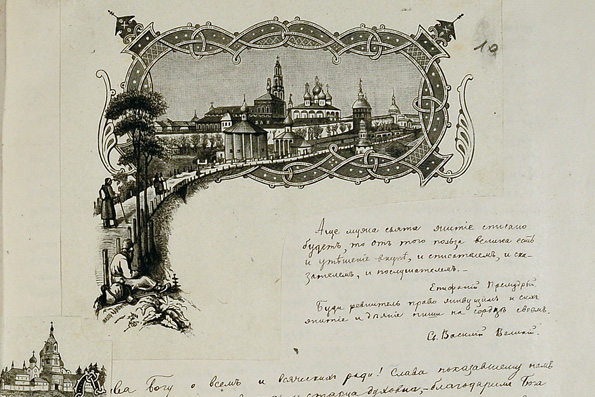 10
Аще мужа свята житіе списано
будетъ, то отъ того польза велика есть
и утѣшеніе вкупѣ, и списателемъ, и ска-
зателемъ, и послушателемъ. –
Епифаній Премудрый.
Буди ревнитель право живущимъ и сихъ
житіе и дѣяніе пиши на сердцѣ своемъ.
Св. Василій Великій.
Слава Богу о всемъ и всяческихъ ради! Слава показавшему намъ
и старца духовна, – благодаримъ Бога